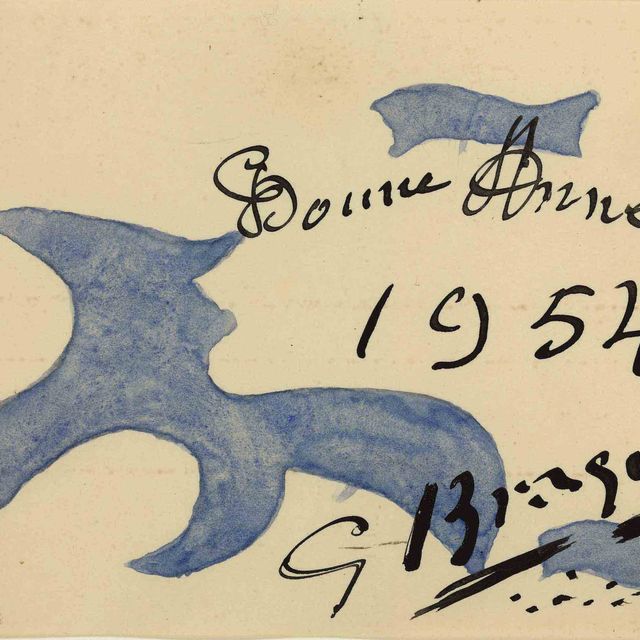 Bonne Anne
1954
G Braq